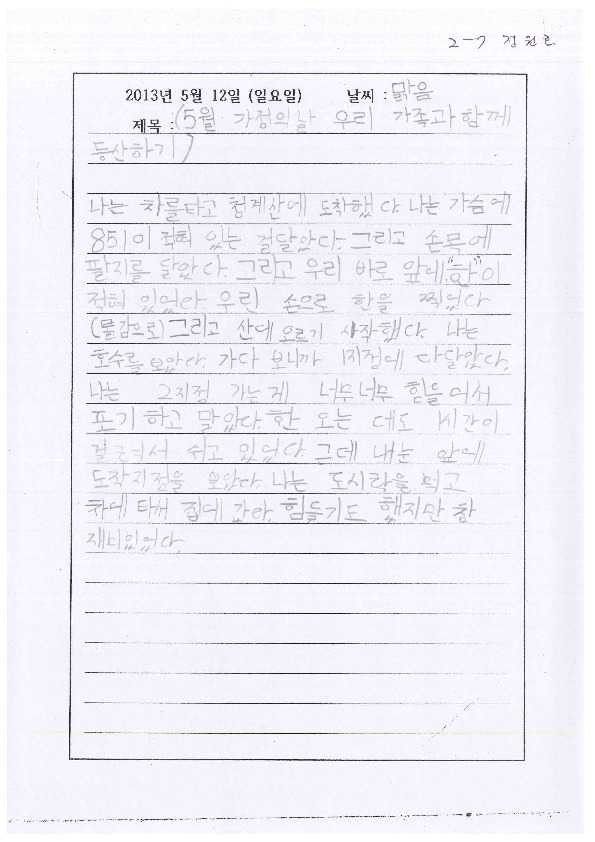 2-7 정원준
2013년 5월 12일 (일요일) 날씨 : 맑음
제목 : (5월 가정의날 우리 가족과 함께
등산하기)
나는 차를타고 청계산에 도착했다. 나는 가슴에
851이 적혀 있는 걸달았다. 그리고 손목에
팔지를 달았다. 그리고 우리 바로 앞에 "한"이
적혀 있었다. 우린 손으로 한을 찍었다
(물감으로) 그리고 산에 오르기 시작했다. 나는
호수를 보았다. 가다 보니까 1지점에 다달았다.
나는 2지점 가는게 너무너무 힘들어서
포기 하고 말았다. 한 오는 데도 시간이
걸려서 쉬고 있었다. 그데 내눈 앞에
도착지점을 보았다. 나는 도시락을 먹고
차에 타서 집에 갔다. 힘들기도 했지만 참
재미있었다.